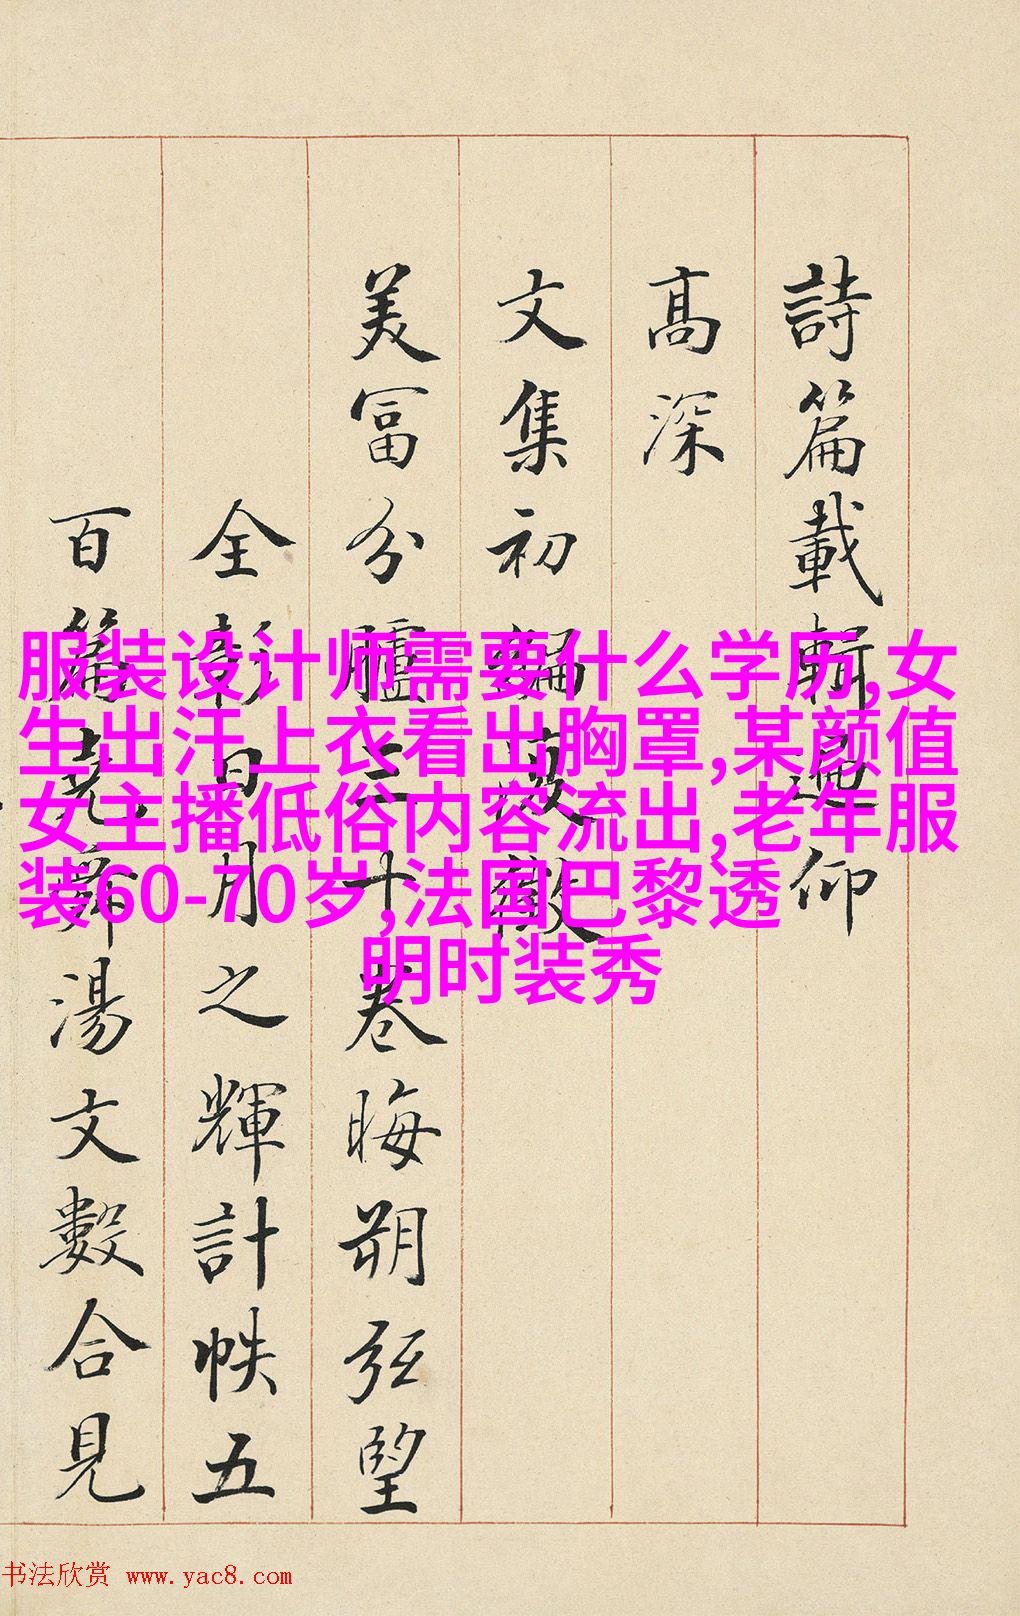 詩篇載輯遍仰
高深
文集初編夐徵
美富分臚三十卷晦朔弦望
全彰日月之輝計帙五
百篇堯舜湯文數合見
服装设计师需要什么学历,女
生出汗上衣看出胸罩,某颜值
女主播低俗内容流出,老年服
装60-70岁,法国巴黎透
明时装秀
书法欣赏 www.yac8.com